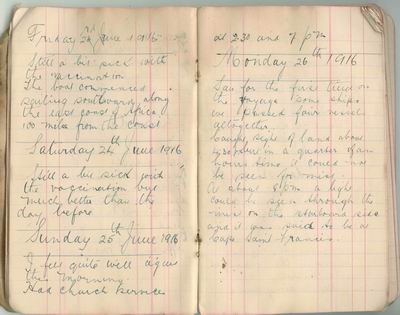 Friday 23rd June 1916
Still a bit sick with
the vaccination
The boat commenced
sailing southward along
the east coast of Africa
100 miles from the coast
Saturday 24th June 1916
Still a bit sick with
the vaccination but
much better than the
day before
Sunday 25th June 1916
I felt quite well again
this morning
Had church service
at 2.30 and 7 pm
Monday 26th 1916
Saw for the first time on
the voyage some ships
we passed four vessels
altogether
Caught sight of land about
in a quarter of an
hours time it could not
be seen for
At about 8 pm a light
could be seen through the
on the starboard side
and it was said to be a
Cape Saint Francis